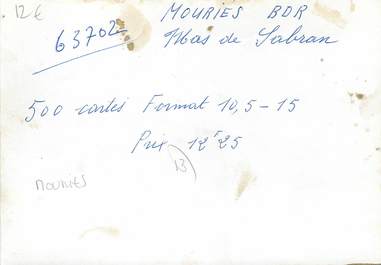 12€
MOURIES BDR
63702 Mas de Sabran
500 cartes Format 10,5-15
Prix 12F25
13
MOURIES